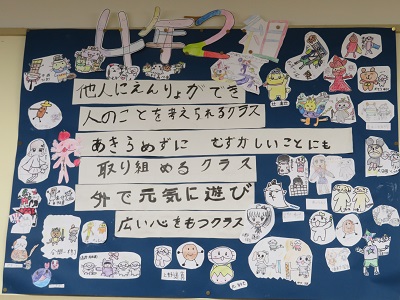 4年2組
他人にえんりょができ
人のことを考えられるクラス
あきらめずに むずかしいことにも
取り組めるクラス
外で元気に遊び
広い心をもつクラス